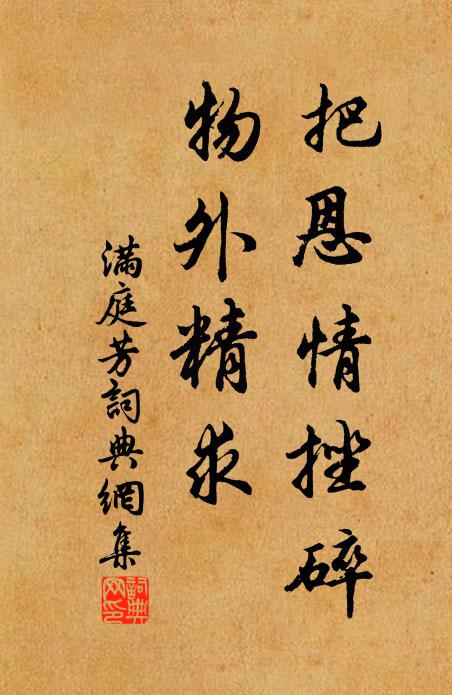 把恩情挫碎
物外精求
滿庭芳詞典網集
詞典网印